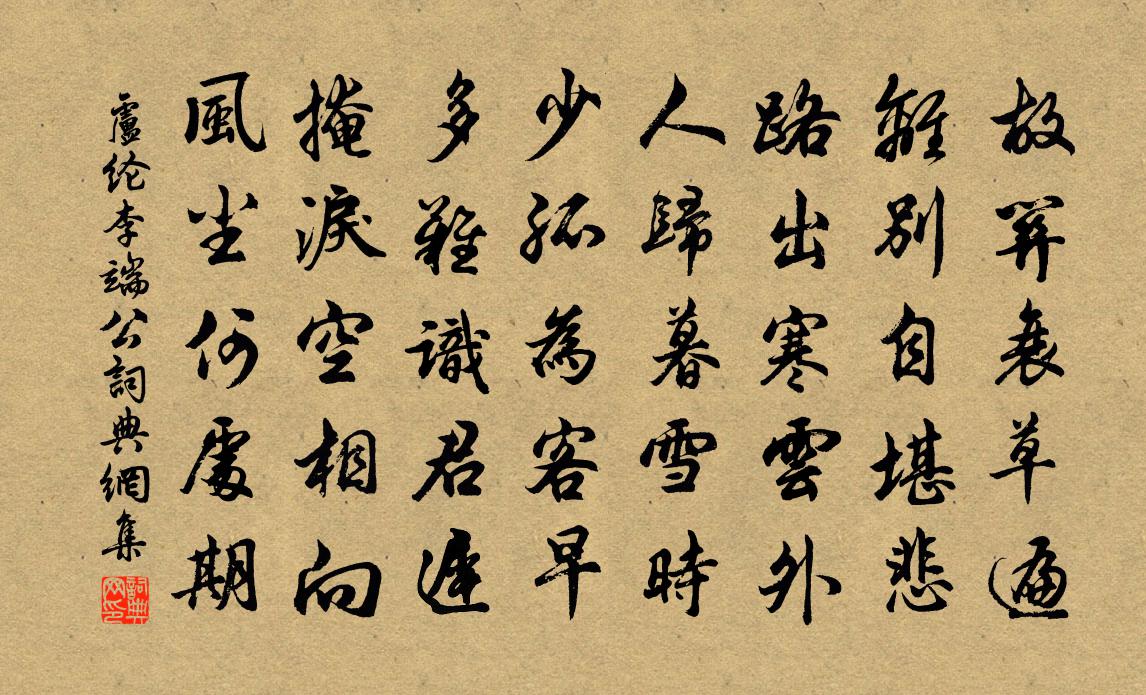 故關衰草遍
離別自堪悲
路出寒雲外
人歸暮雪時
少孤為客早
多難識君遲
掩淚空相向
風尘何處期
盧纶李端公詞典網集
詞典网印